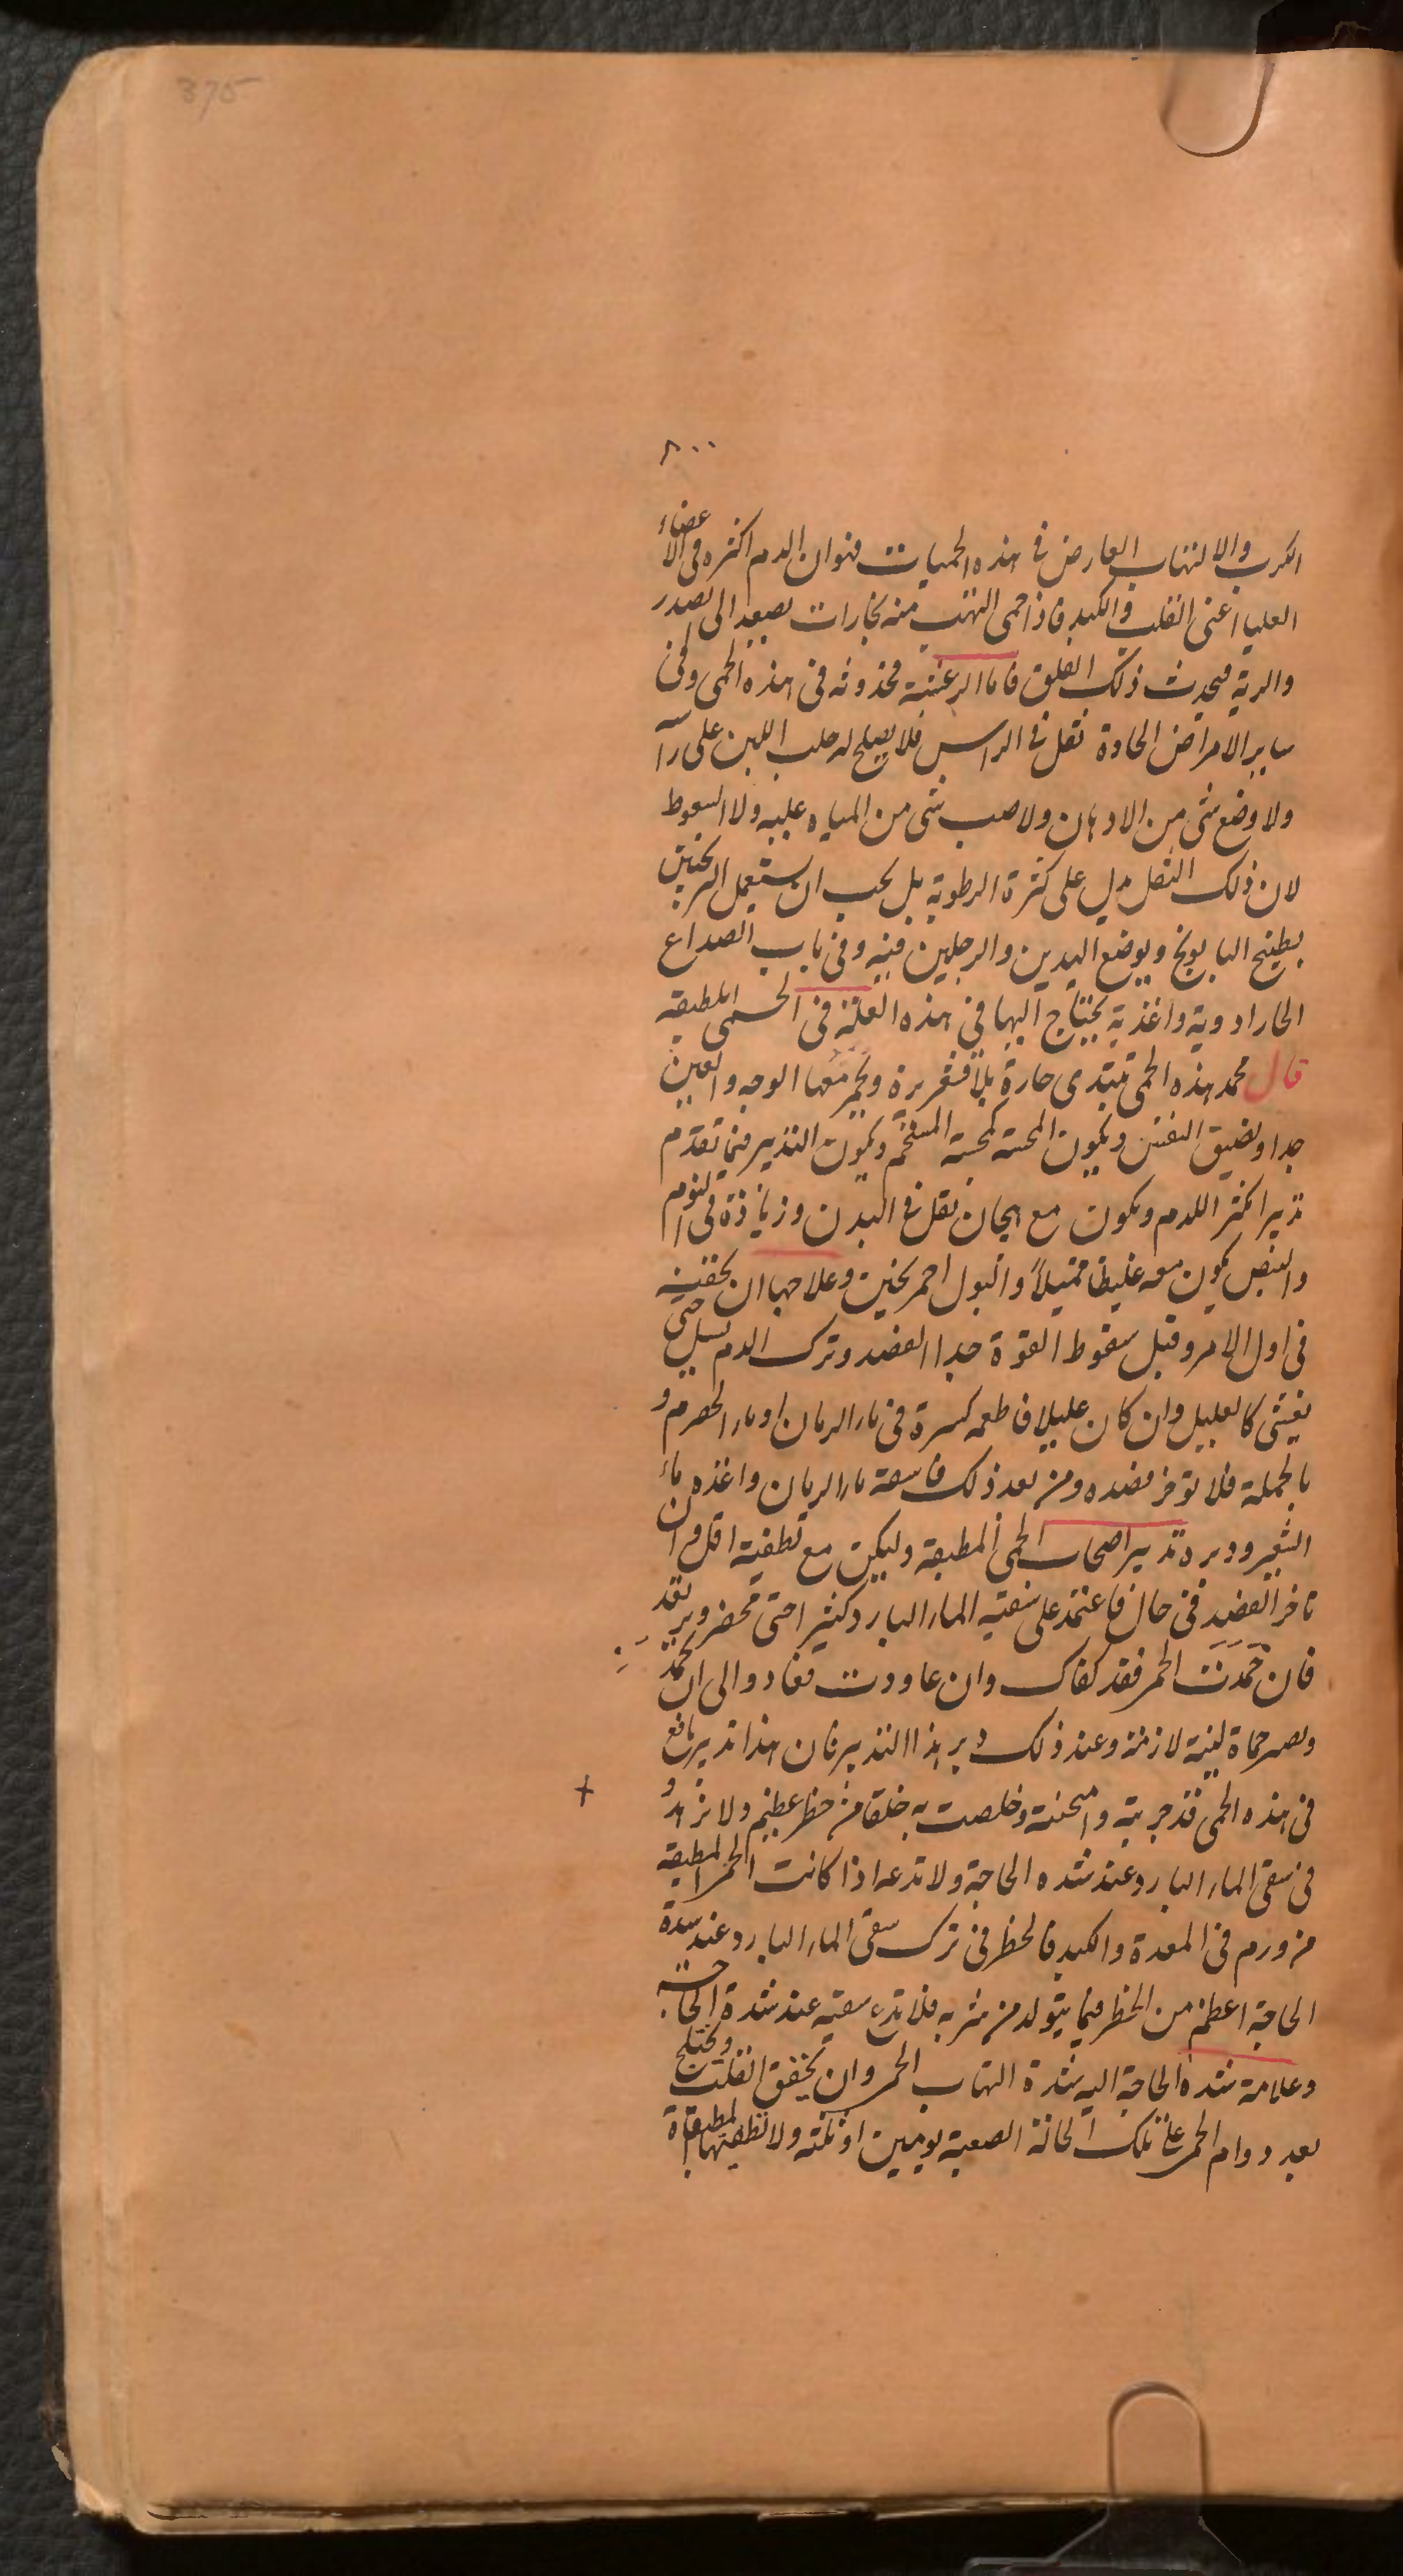 375
٨٠٠
الكرب والالتهاب العارض فى هذه الحميات فهو ان الدم اكثره فى الاعضاء
العليا اعنى القلب والكبد فاذا حمى التهب منه بخارات تصعد الى الصدر
والرية فيحدث ذلك القلق فاما الرعشة فحدوثه فى هذه الحمى وفى
ساير الامراض الحادة ثقل فى الراس فلا يصلح له حلب اللبن على رآ
ولا وضع شى من الادهان ولا صب شى من المياه عليه ولا السعوط
لان ذلك الثقل يدل على كثرة الرطوبة بل يجب ان يستعمل
بطبيخ البابونج ويوضع اليدين والرجلين فيه وفى باب الصداع
الحار ادوية واغذية يحتاج اليها فى هذه العلة فى الحمى المطبقه
قال محمد هذه الحمى تبتدى حارة بلا قشعريرة ويحمر معها الوجه والعين
جدا وتضيق النفس ويكون المجسة كمجسة المستحم ويكون التدبير فيما تقدم
تدبيرا مكثرا للدم ويكون مع هيجان ثقل فى البدن وزياذة فى النوم
والنبض يكون معه غليظا ممتيلاً والبول احمر ثخين وعلاجها ان
فى اول الامر وقبل سقوط القوة جدا الفصد وترك الدم يسيل حتى
يغشى كالعليل وان كان عليلا فاطعمه كسرة فى ماء الرمان او ماء الحصرم و
بالجملة فلا توخر فصده ومن بعد ذلك فاسقه ماء الرمان واغذه بماء
الشعير ودبره تدبير اصحاب الحمى المطبقة وليكن مع تطفية اقل وان
تاخر الفصد فى حال فاعتمد على سقيه الماء البارد كثيرا حتى يخضر ويرتعد
فان خمدت الحمى فقد كفاك وان عاودت فعاد والى ان تخمد
وتصير حماة لينة لازمة وعند ذلك دبر بهذا التدبير فان هذا تدبير نافع
فى هذه الحمى قد جربته وامتحنته وخلصت به خلقا من خطر عظيم ولا تزهد
فى سقى الماء البارد عند شده الحاجة ولا تدعه اذا كانت الحمى المطبقة
من ورم فى المعدة والكبد فالخطر فى ترك سقى الماء البارد عند شدة
الحاجة اعظم من الخطر فيما يتولد من شربه فلا تدع سقيه عند شدة الحاجه
وعلامة شدة الحاجة اليه شدة التهاب الحمى وان يخفق القلب ويختلج
بعد دوام الحمى على تلك الحالة الصعبة يومين او ثلثة ولا تطفيها